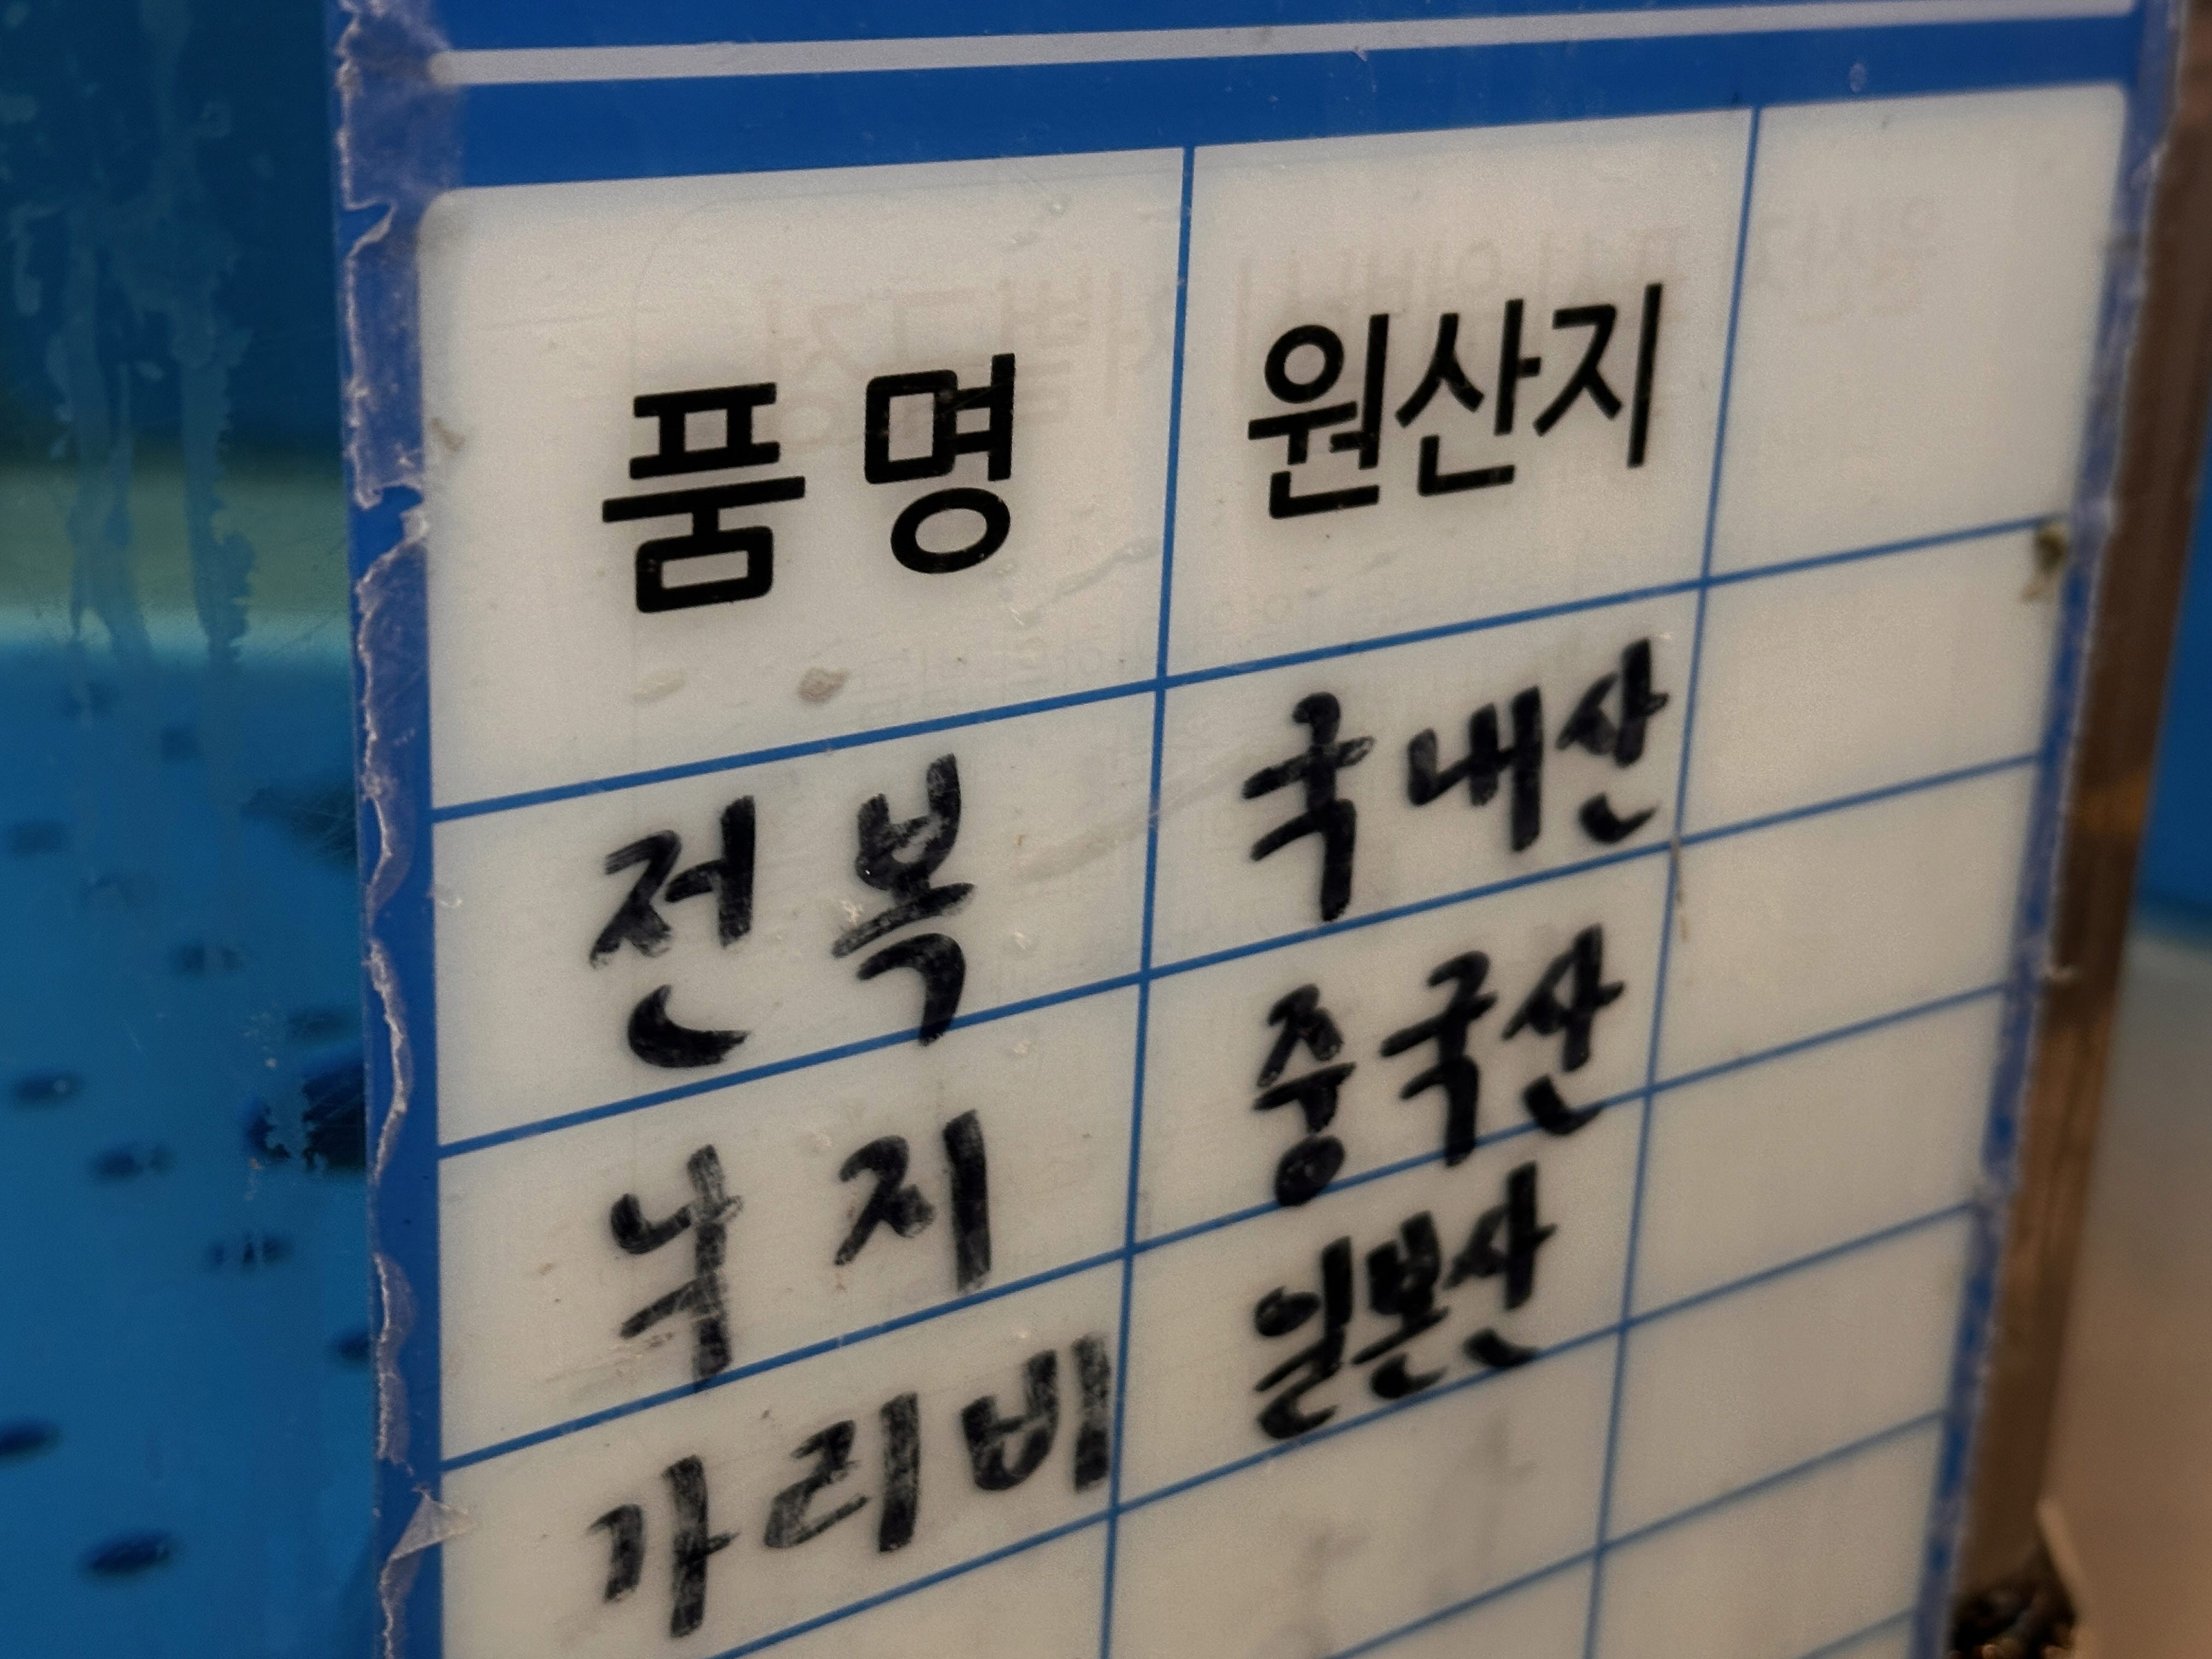 품명 원산지
전복 국내산
낙지 중국산
가리비 일본산